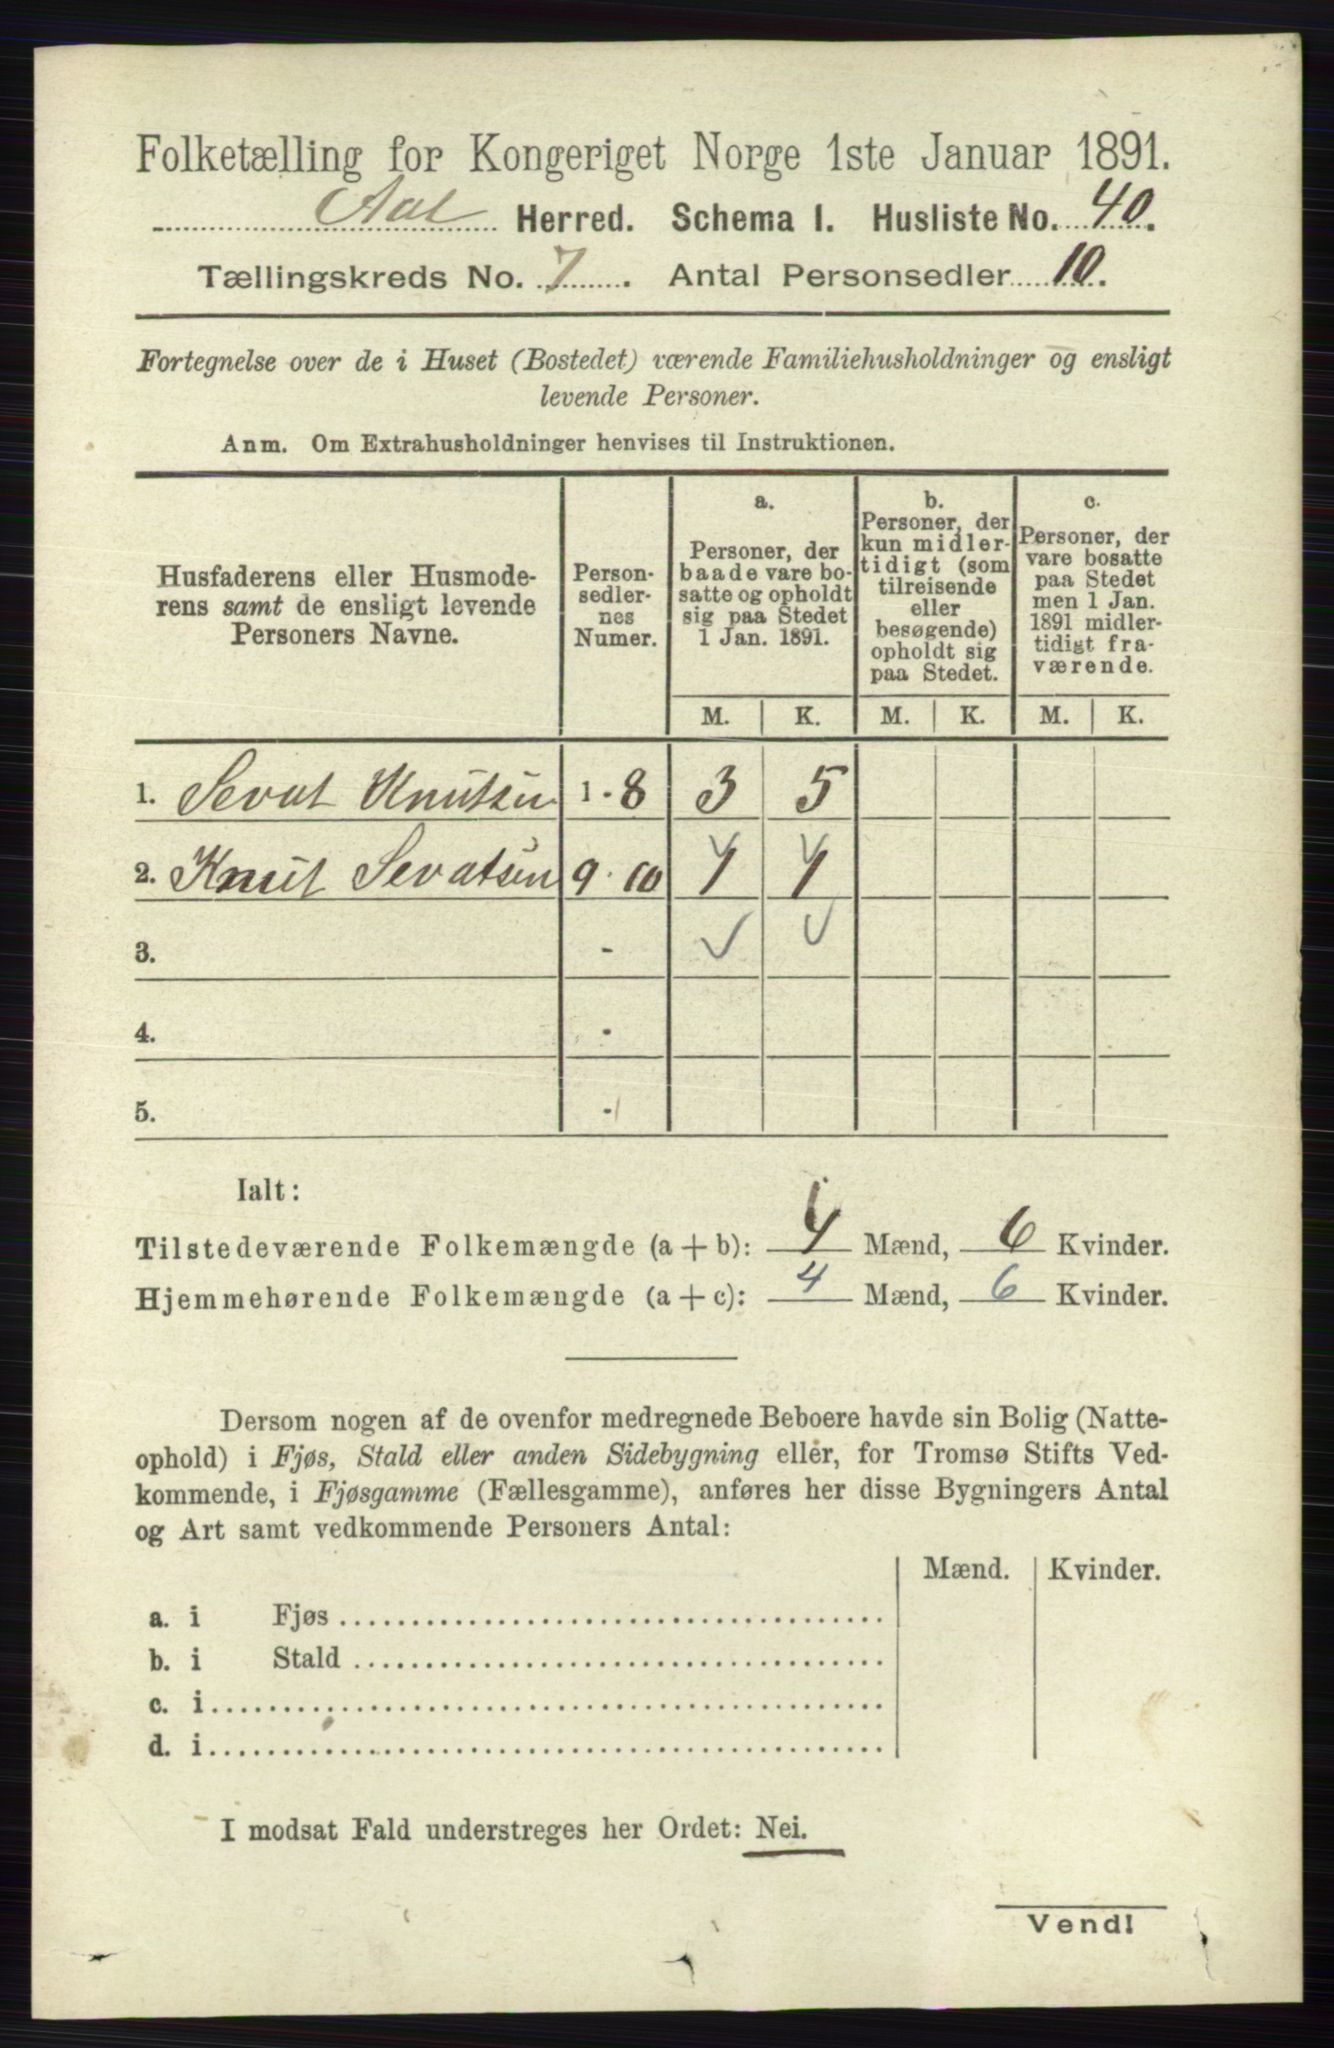 Folketælling for Kongeriget Norge 1ste Januar 1891.
Aal Herred. Schema I. Husliste No. 40.
Tællingskreds No. 7. Antal Personsedler 10.
Fortegnelse over de i Huset (Bostedet) værende Familiehusholdninger og ensligt
levende Personer.
Anm. Om Extrahusholdninger henvises til Instruktionen.
Husfaderens eller Husmode-
rens samt de ensligt levende
Personers Navne.
Person-
sedler-
nes
Numer.
a.
Personer, der
baade vare bo-
satte og opholdt
sig paa Stedet
1 Jan. 1891.
b.
Personer, der
kun midler-
tidigt (som
tilreisende
eller
besøgende)
opholdt sig
paa Stedet.
c.
Personer, der
vare bosatte
paa Stedet
men 1 Jan.
1891 midler-
tidigt fra-
værende.
M. K. M. K. M. K.
1. Sevat Knutsen 1 - 8 3 5
2. Knut Sevatsen 9 - 10
3. -
4. -
5. -
Ialt:
Tilstedeværende Folkemængde (a + b): 4 Mænd, 6 Kvinder.
Hjemmehørende Folkemængde (a + c): 4 Mænd, 6 Kvinder.
Dersom nogen af de ovenfor medregnede Beboere havde sin Bolig (Natte-
ophold) i Fjøs, Stald eller anden Sidebygning eller, for Tromsø Stifts Ved-
kommende, i Fjøsgamme (Fællesgamme), anføres her disse Bygningers Antal
og Art samt vedkommende Personers Antal:
Mænd. Kvinder.
a. i Fjøs
b. i Stald
c. i
d. i
I modsat Fald understreges her Ordet: Nei.
Vend!